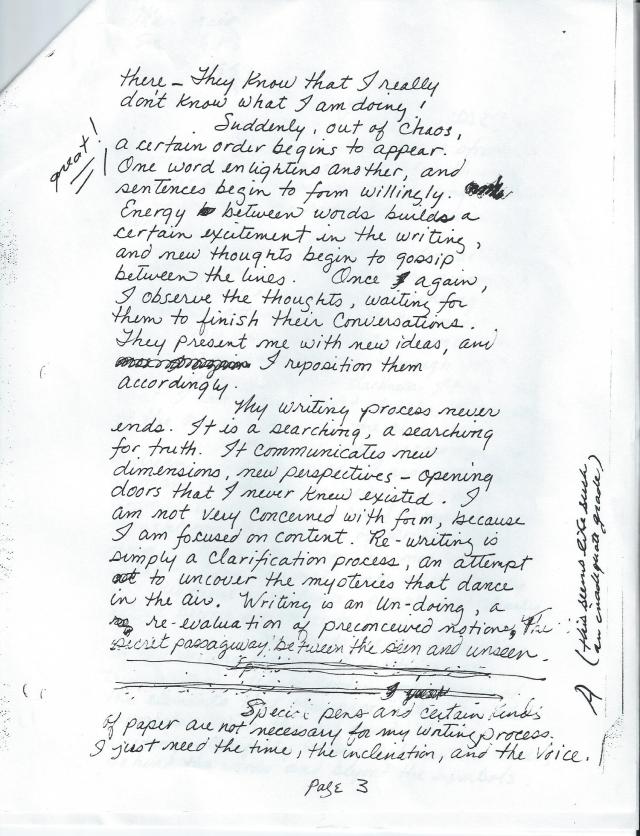 there – They know that I really
don't know what I am doing!
Suddenly, out of chaos,
a certain order begins to appear.
great!
One word enlightens another, and
sentences begin to form willingly.
Energy between words builds a
certain excitement in the writing,
and new thoughts begin to gossip
between the lines. Once again,
I observe the thoughts, waiting for
them to finish their conversations.
They present me with new ideas, and
I reposition them
accordingly.
My writing process never
ends. It is a searching, a searching
for truth. It communicates new
dimensions, new perspectives – opening
doors that I never knew existed. I
am not very concerned with form, because
I am focused on content. Re-writing is
simply a clarification process, an attempt
to uncover the mysteries that dance
in the air. Writing is an un-doing, a
re-evaluation of preconceived notions, The
secret passagway between the seen and unseen.
I just
Special pens and certain kinds
of paper are not necessary for my writing process.
I just need the time, the inclination, and the voice.
A (this seems like such
an inadequate grade)
Page 3